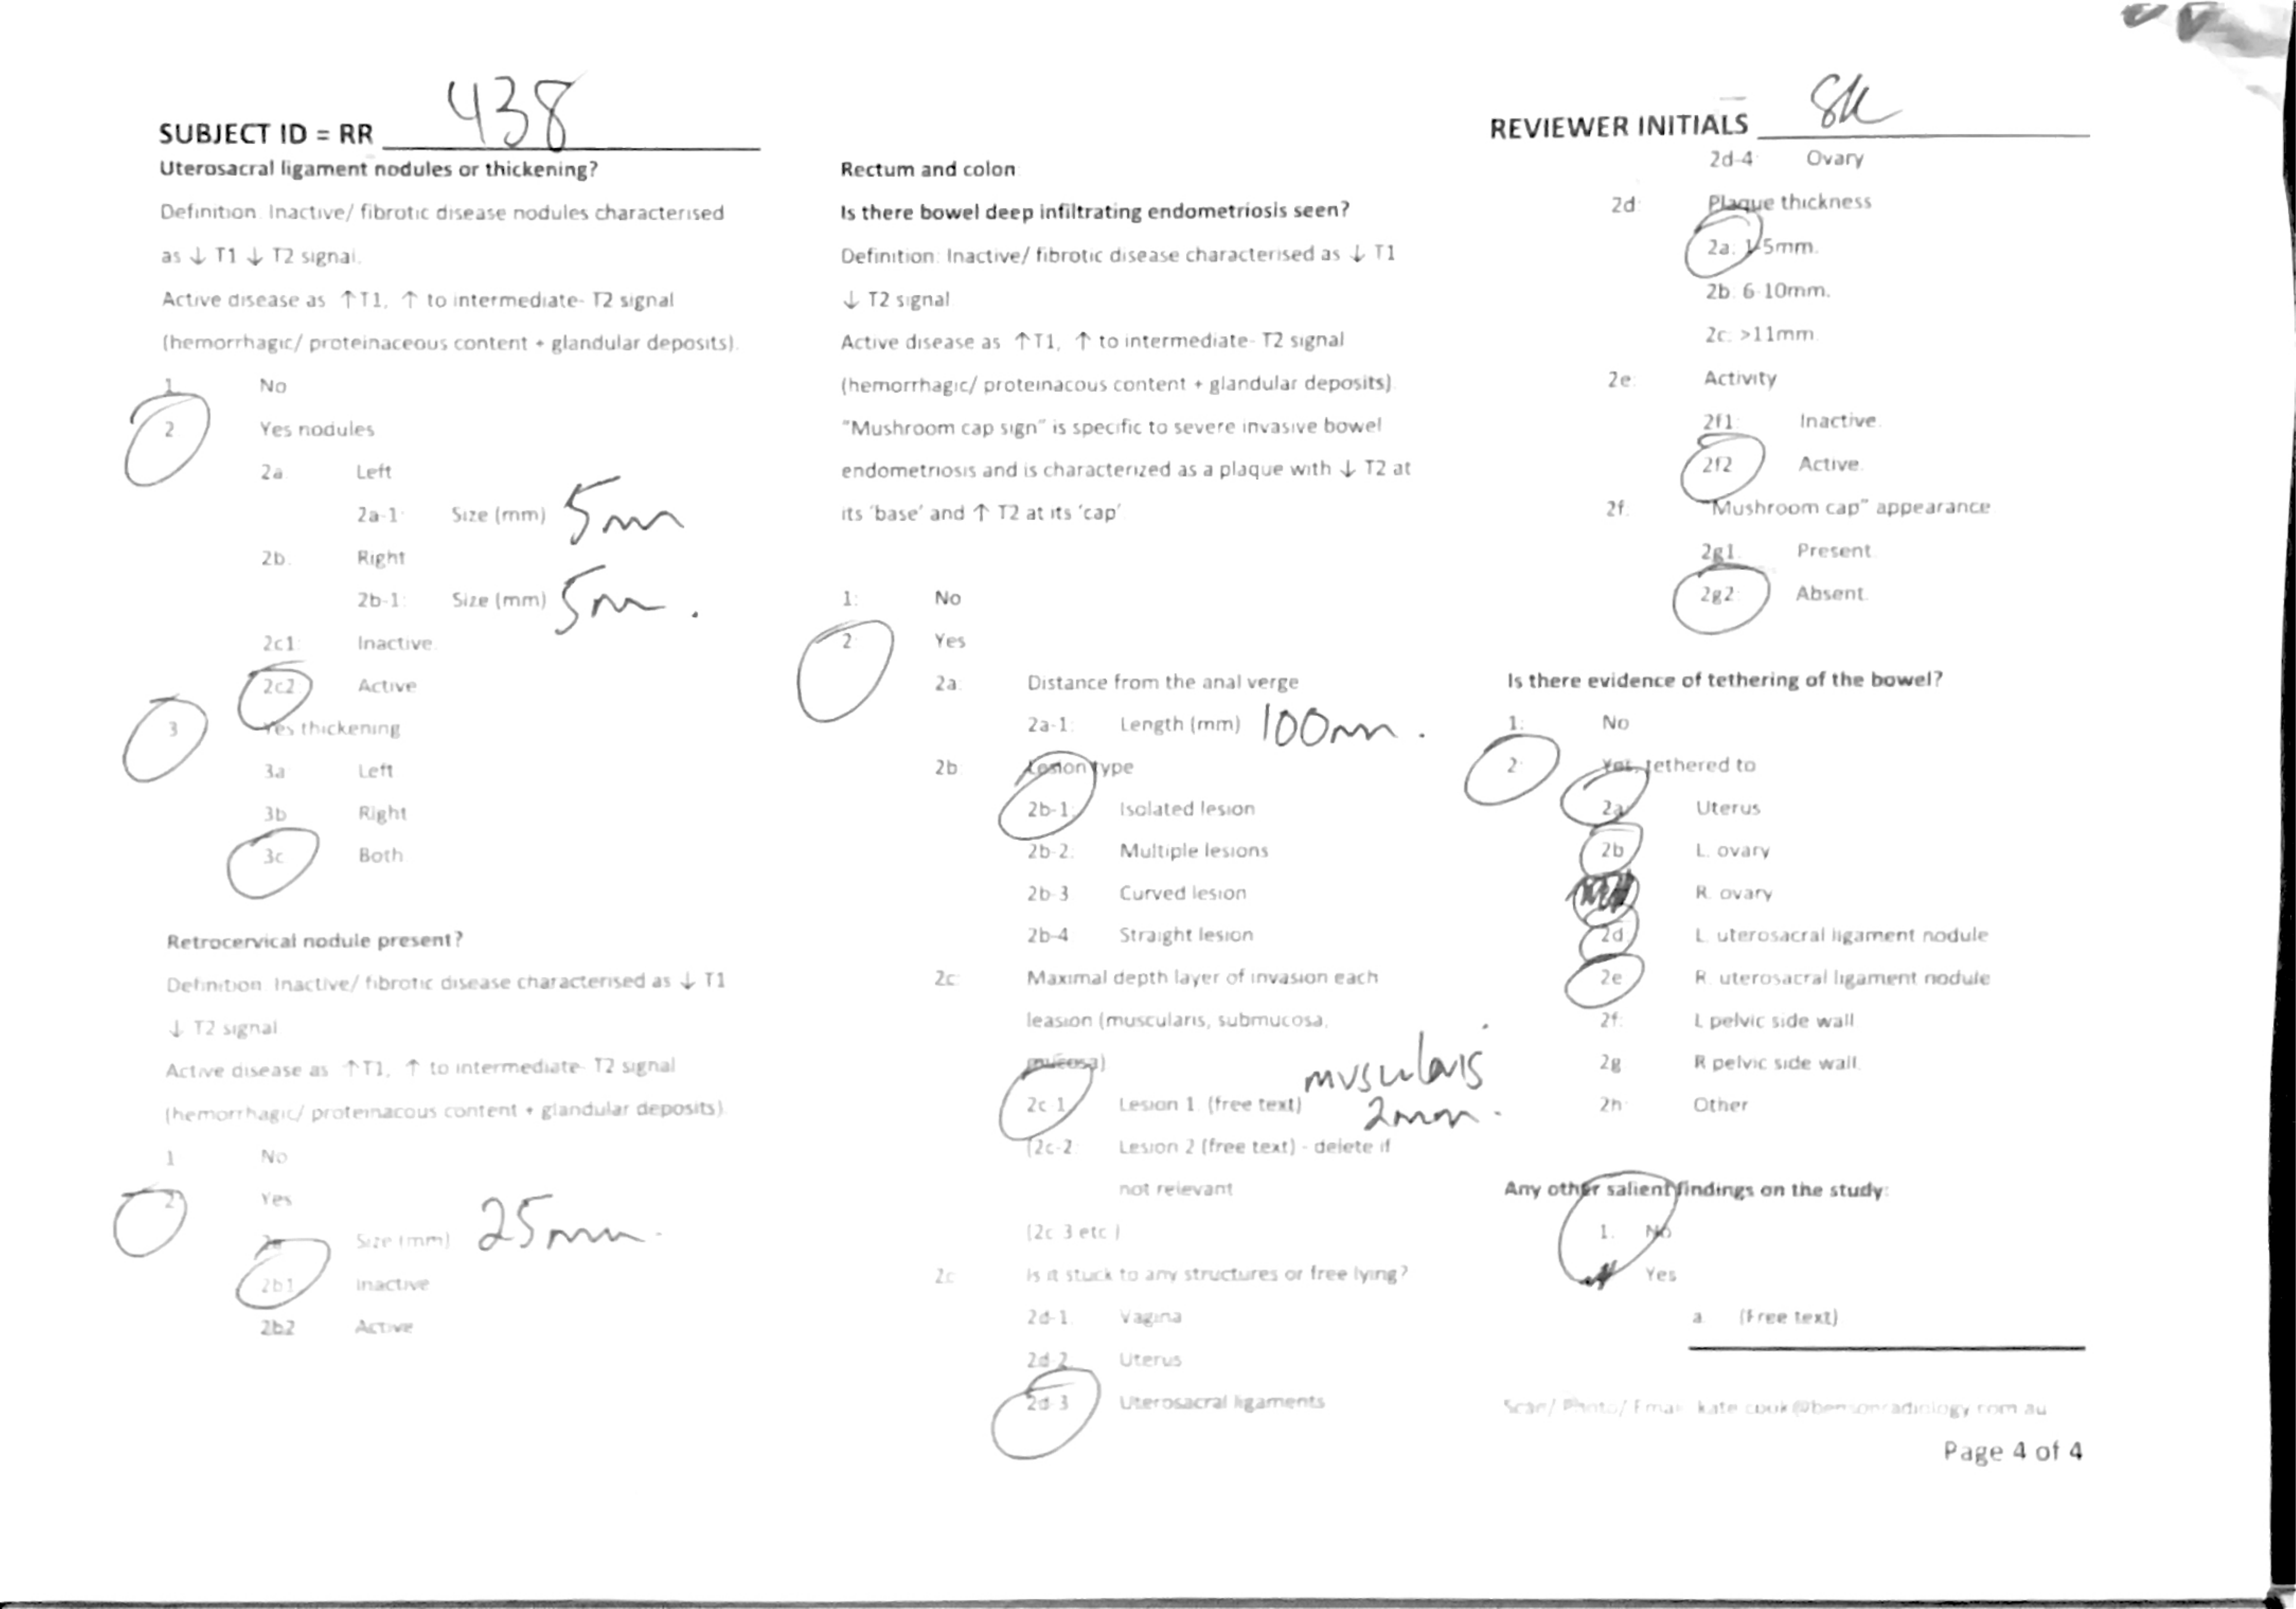 SUBJECT ID = RR 438
Uterosacral ligament nodules or thickening?
Definition. Inactive/ fibrotic disease nodules characterised
as ↓ T1 ↓ T2 signal.
Active disease as ↑T1, ↑ to intermediate- T2 signal
(hemorrhagic/ proteinaceous content + glandular deposits).
1 No
2 Yes nodules
2a Left
2a-1: Size (mm) 5mm
2b. Right
2b-1: Size (mm) 5mm.
2c1: Inactive.
2c2 Active
3 Yes thickening
3a Left
3b Right
3c Both
Retrocervical nodule present?
Definition Inactive/ fibrotic disease characterised as ↓ T1
↓ T2 signal
Active disease as ↑T1, ↑ to intermediate- T2 signal
(hemorrhagic/ proteinacous content + glandular deposits).
1 No
2 Yes
2a Size (mm) 25mm.
2b1 Inactive
2b2 Active
Rectum and colon
Is there bowel deep infiltrating endometriosis seen?
Definition: Inactive/ fibrotic disease characterised as ↓ T1
↓ T2 signal
Active disease as ↑T1, ↑ to intermediate- T2 signal
(hemorrhagic/ proteinacous content + glandular deposits).
"Mushroom cap sign" is specific to severe invasive bowel
endometriosis and is characterized as a plaque with ↓ T2 at
its 'base' and ↑ T2 at its 'cap'
1: No
2: Yes
2a: Distance from the anal verge
2a-1: Length (mm) 100mm.
2b Lesion type
2b-1: Isolated lesion
2b-2: Multiple lesions
2b-3 Curved lesion
2b-4 Straight lesion
2c: Maximal depth layer of invasion each
leasion (muscularis, submucosa,
mucosa)
muscularis
2c-1 Lesion 1. (free text) 2mm.
(2c-2: Lesion 2 (free text) - delete if
not relevant
(2c 3 etc )
2c Is it stuck to any structures or free lying?
2d-1 Vagina
2d-2 Uterus
2d-3 Uterosacral ligaments
REVIEWER INITIALS
2d-4: Ovary
2d: Plaque thickness
2a: 1-5mm.
2b. 6-10mm.
2c: >11mm.
2e: Activity
2f1: Inactive.
2f2 Active.
2f: "Mushroom cap" appearance
2g1. Present.
2g2: Absent.
Is there evidence of tethering of the bowel?
1: No
2: Yes, tethered to
2a Uterus
2b L. ovary
R. ovary
2d L. uterosacral ligament nodule
2e R. uterosacral ligament nodule
2f: L pelvic side wall
2g R pelvic side wall.
2h Other
Any other salient findings on the study:
1. No
Yes
a. (Free text)
Scan/ Photo/ Email kate.cook@bensonradiology.com.au
Page 4 of 4